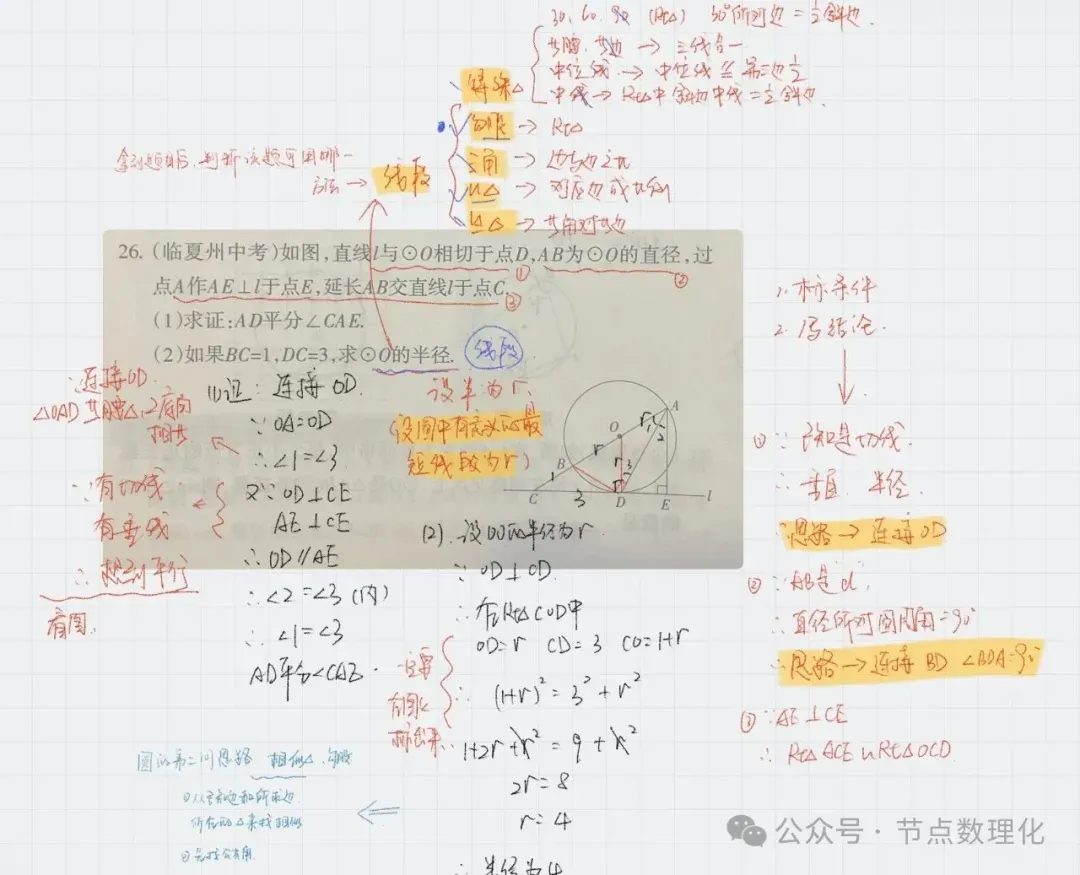 30. 60. 90 (Rt△) 30°所对边=½斜边.
等腰. 等边 → 三线合一
中位线 → 中位线 ∥ 第三边 ½
中线 → Rt△中斜边中线=½斜边.
特殊△
勾股 → Rt△
三角 → 边与边之比
∽△ → 对应边成比例
≌△ → 等角对等边
拿到题目后, 判断该题可用哪一
方法 → 线段
26. (临夏州中考)如图,直线l与⊙O相切于点D,AB为⊙O的直径,过 ① ②
点A作AE⊥l于点E,延长AB交直线l于点C. ③
(1)求证:AD平分∠CAE.
(2)如果BC=1,DC=3,求⊙O的半径. 线段
∵连接OD.
△OAD等腰△,2底角
相等
∵有切线
有垂线
∴想到平行
看图.
(1)证: 连接OD.
∵OA=OD
∴∠1=∠3
又∵OD⊥CE
AE⊥CE
∴OD∥AE
∴∠2=∠3(内)
∴∠1=∠3
AD平分∠CAE.
设半为r.
(设图中有意义的最
短线段为r)
A
1
2
r
O
r
r
3
B
1
C
3
D
E
l
(2).设⊙O的半径为r.
∵OD⊥OD.
∴在Rt△COD中
OD=r CD=3 CO=1+r
∴(1+r)²=3²+r²
1+2r+r²=9+r²
2r=8
r=4
∴半径为4
一定要
在图上
标出来.
1. 标条件
2. 写结论.
①∵已知是切线.
∴垂直 半径.
∴思路→连接OD
②∵AB是d.
∴直径所对圆周角=90°
∴思路→连接BD ∠BDA=90°
③∵AE⊥CE
∴Rt△ACE∽Rt△OCD.
圆的第二问思路 相似△. 勾股
①从已知边和所求边
所在的△来找相似
②先找公共角
公众号·节点数理化